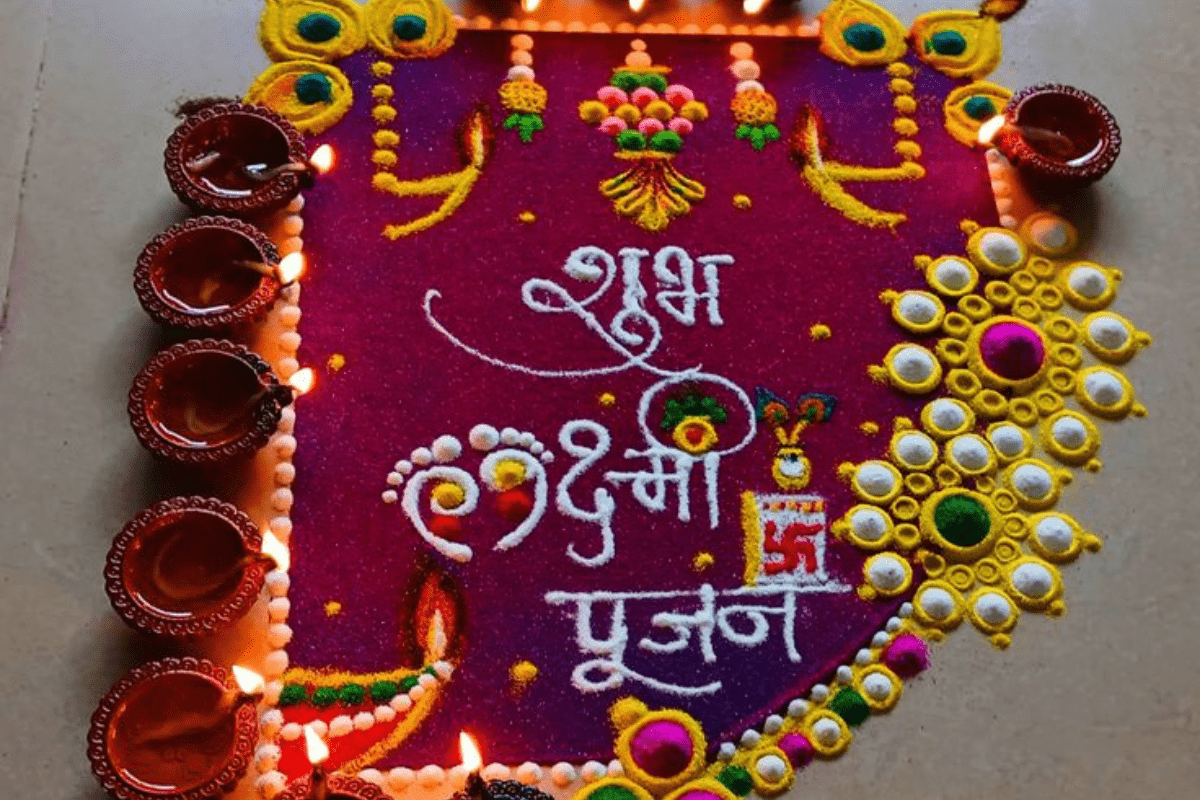 शुभ
लक्ष्मी
पूजन